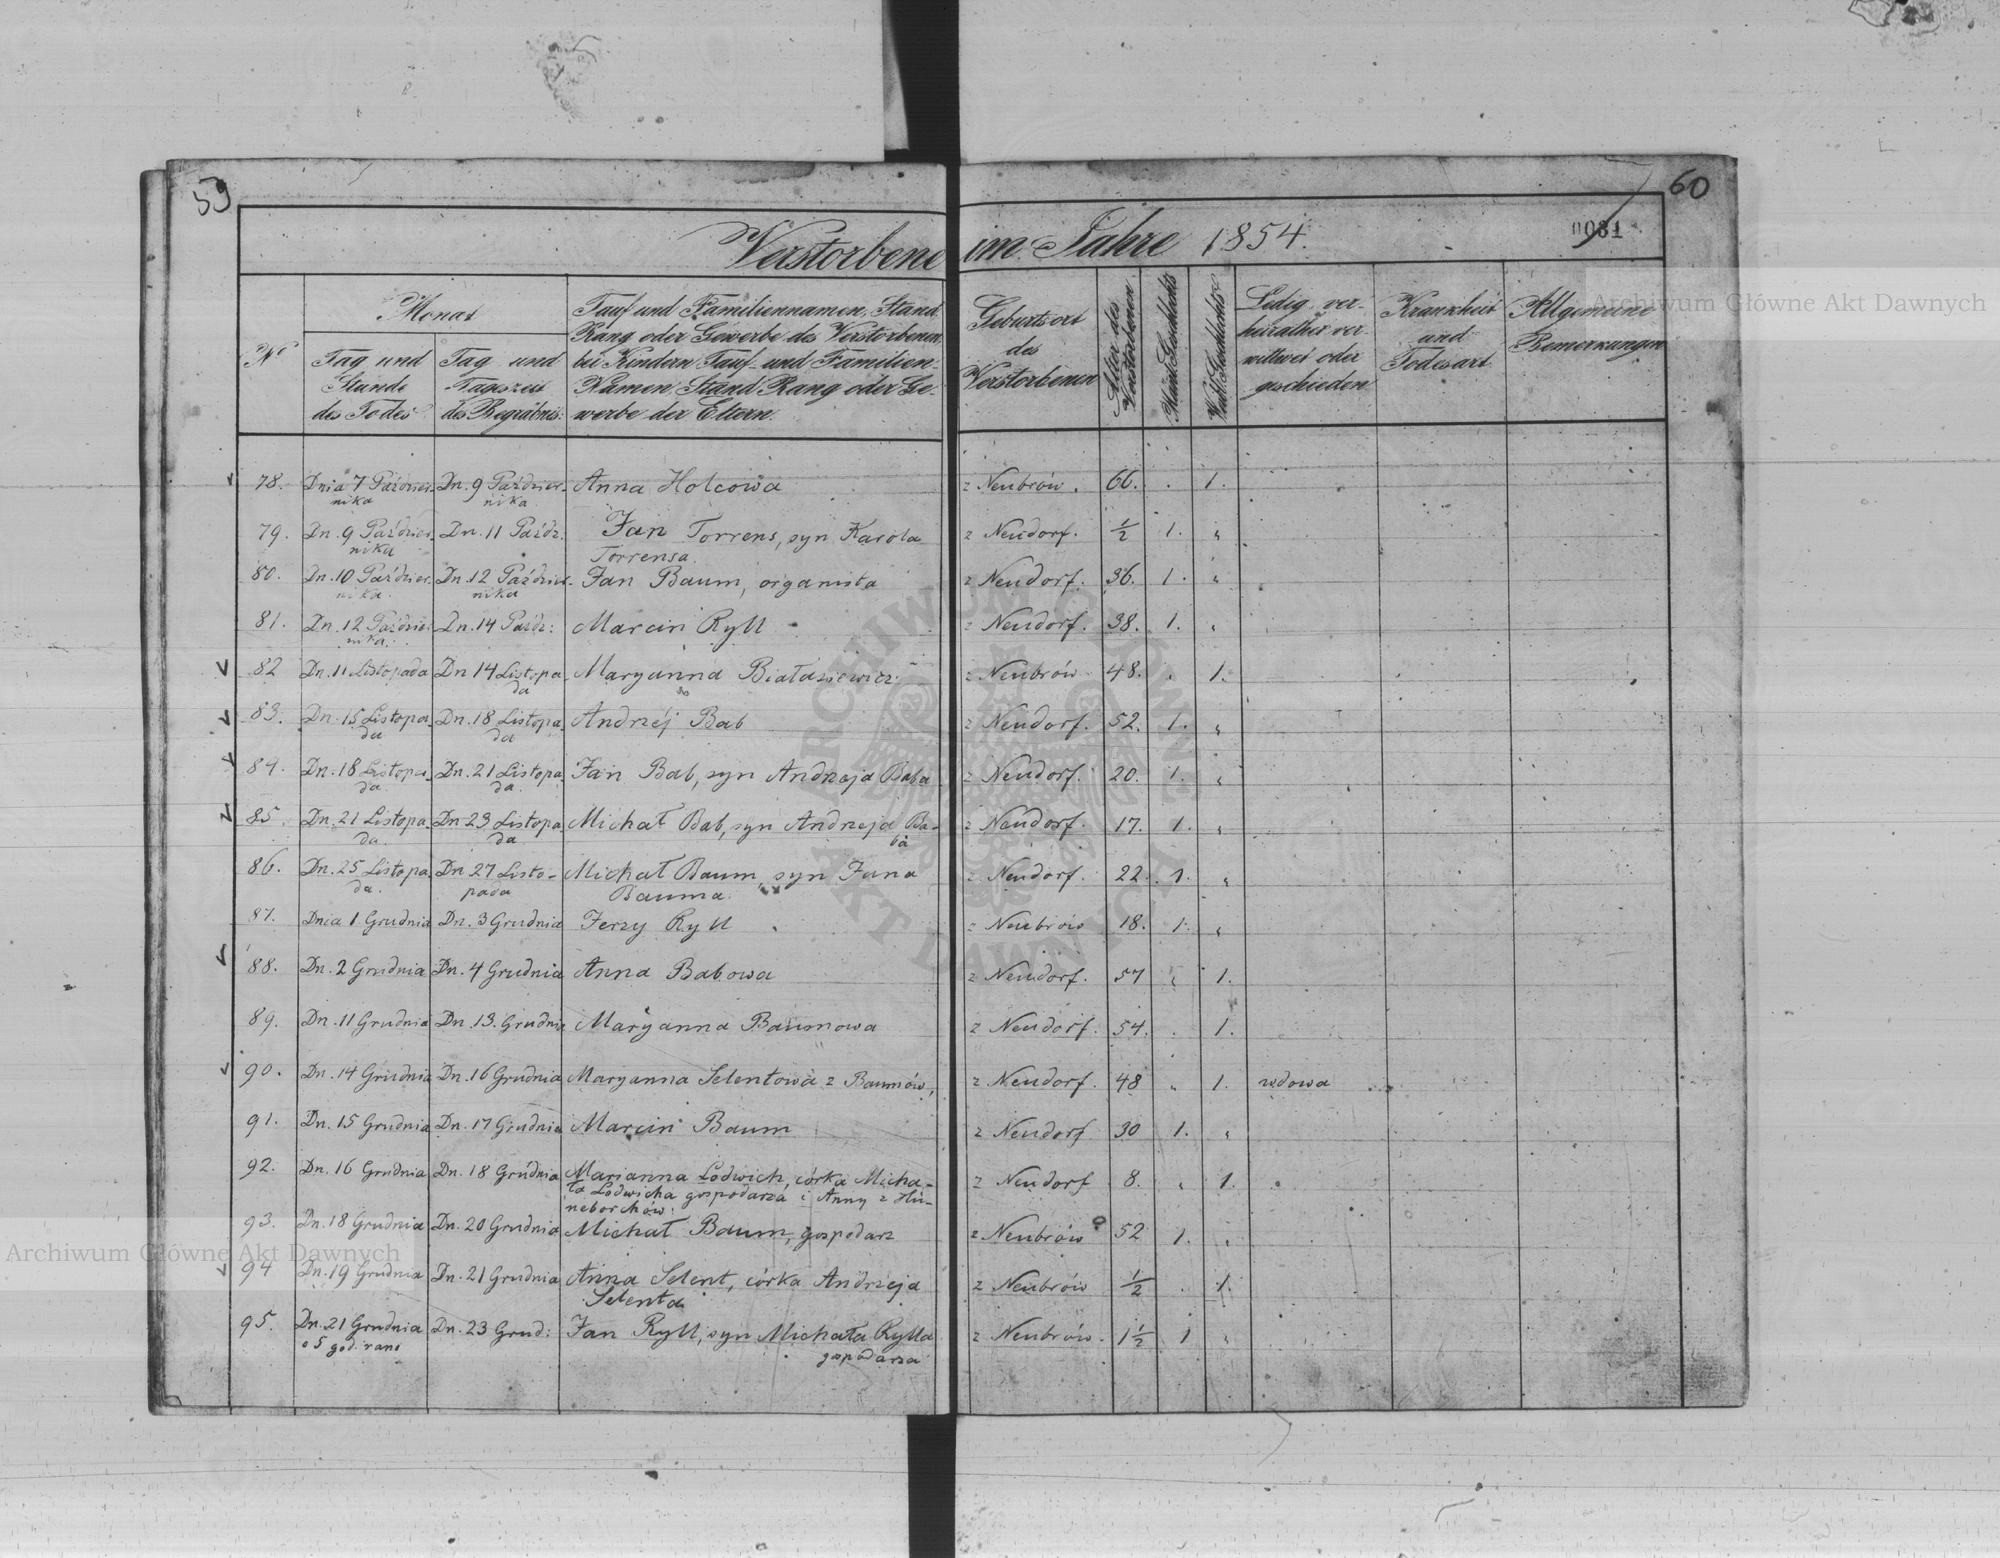 59
60
Verstorbene im Jahre 1854.
0031
Archiwum Główne Akt Dawnych
Nº
Monat
Tag und
Stunde
des Todes
Tag und
Tagszeit
des Begräbnis:
Tauf und Familiennamen, Stand
Rang oder Gewerbe des Verstorbenen
bei Kindern Tauf- und Familien-
Namen, Stand Rang oder Ge-
werbe der Eltern.
Geburtsort
des
Verstorbenen
Alter des
Verstorbenen
Männl. Geschlechts
Weibl. Geschlechts
Ledig, ver-
heirathet ver-
wittwet oder
geschieden
Krankheit
und
Todesart
Allgemeine
Bemerkungen
78. Dnia 7 Paździer- Dn. 9 Paździer- Anna Holcowa z Neubrów. 66. . 1.
nika nika
79. Dn. 9 Paździer- Dn. 11 Paźdz. Jan Torrens, syn Karola z Neudorf. ½ 1. "
nika Torrensa.
80. Dn. 10 Paździer- Dn. 12 Paździer- Jan Baum, organista z Neudorf. 36. 1. "
nika. nika
81. Dn. 12 Paździer- Dn. 14 Paźdz: Marcin Ryll z Neudorf. 38. 1. "
nika.
82 Dn. 11 Listopada Dn 14 Listopa- Maryanna Białasiewicz z Neubrów 48. . 1.
da
83. Dn. 15 Listopa- Dn. 18 Listopa- Andrzéj Bab z Neudorf. 52. 1. "
da da
84. Dn. 18 Listopa- Dn. 21 Listopa- Jan Bab, syn Andrzeja Baba z Neudorf. 20. 1. "
da da.
85. Dn. 21 Listopa- Dn 23 Listopa- Michał Bab, syn Andrzeja Ba- z Neudorf. 17. 1. "
da. da ba
86. Dn. 25 Listopa- Dn 27 Listo- Michał Baum syn Jana z Neudorf. 22. 1. "
da. pada Bauma.
87. Dnia 1 Grudnia Dn. 3 Grudnia Jerzy Ryll z Neubrów 18. 1. "
88. Dn. 2 Grudnia Dn. 4 Grudnia Anna Babowa z Neudorf. 57 " 1.
89. Dn. 11 Grudnia Dn. 13. Grudnia Maryanna Baumowa z Neudorf. 54. . 1.
90. Dn. 14 Grudnia Dn. 16 Grudnia Maryanna Selentowa z Baumów, z Neudorf. 48 " 1. wdowa
91. Dn. 15 Grudnia Dn. 17 Grudnia Marcin Baum z Neudorf 30 1. "
92. Dn. 16 Grudnia Dn. 18 Grudnia Marianna Lodwich, córka Micha- z Neudorf 8. " 1.
ła Lodwicha gospodarza i Anny z Hü-
neborchów.
93. Dn. 18 Grudnia Dn. 20 Grudnia Michał Baum, gospodarz z Neubrów 52 1. "
94 Dn. 19 Grudnia Dn. 21 Grudnia Anna Selent, córka Andrzeja z Neubrów ½ . 1.
Selenta
95. Dn. 21 Grudnia Dn. 23 Grud: Jan Ryll, syn Michała Rylla z Neubrów. 1½ 1 "
o 5 god. rano gospodarza
Archiwum Główne Akt Dawnych
ARCHIWUM GŁÓWNE
AKT DAWNYCH